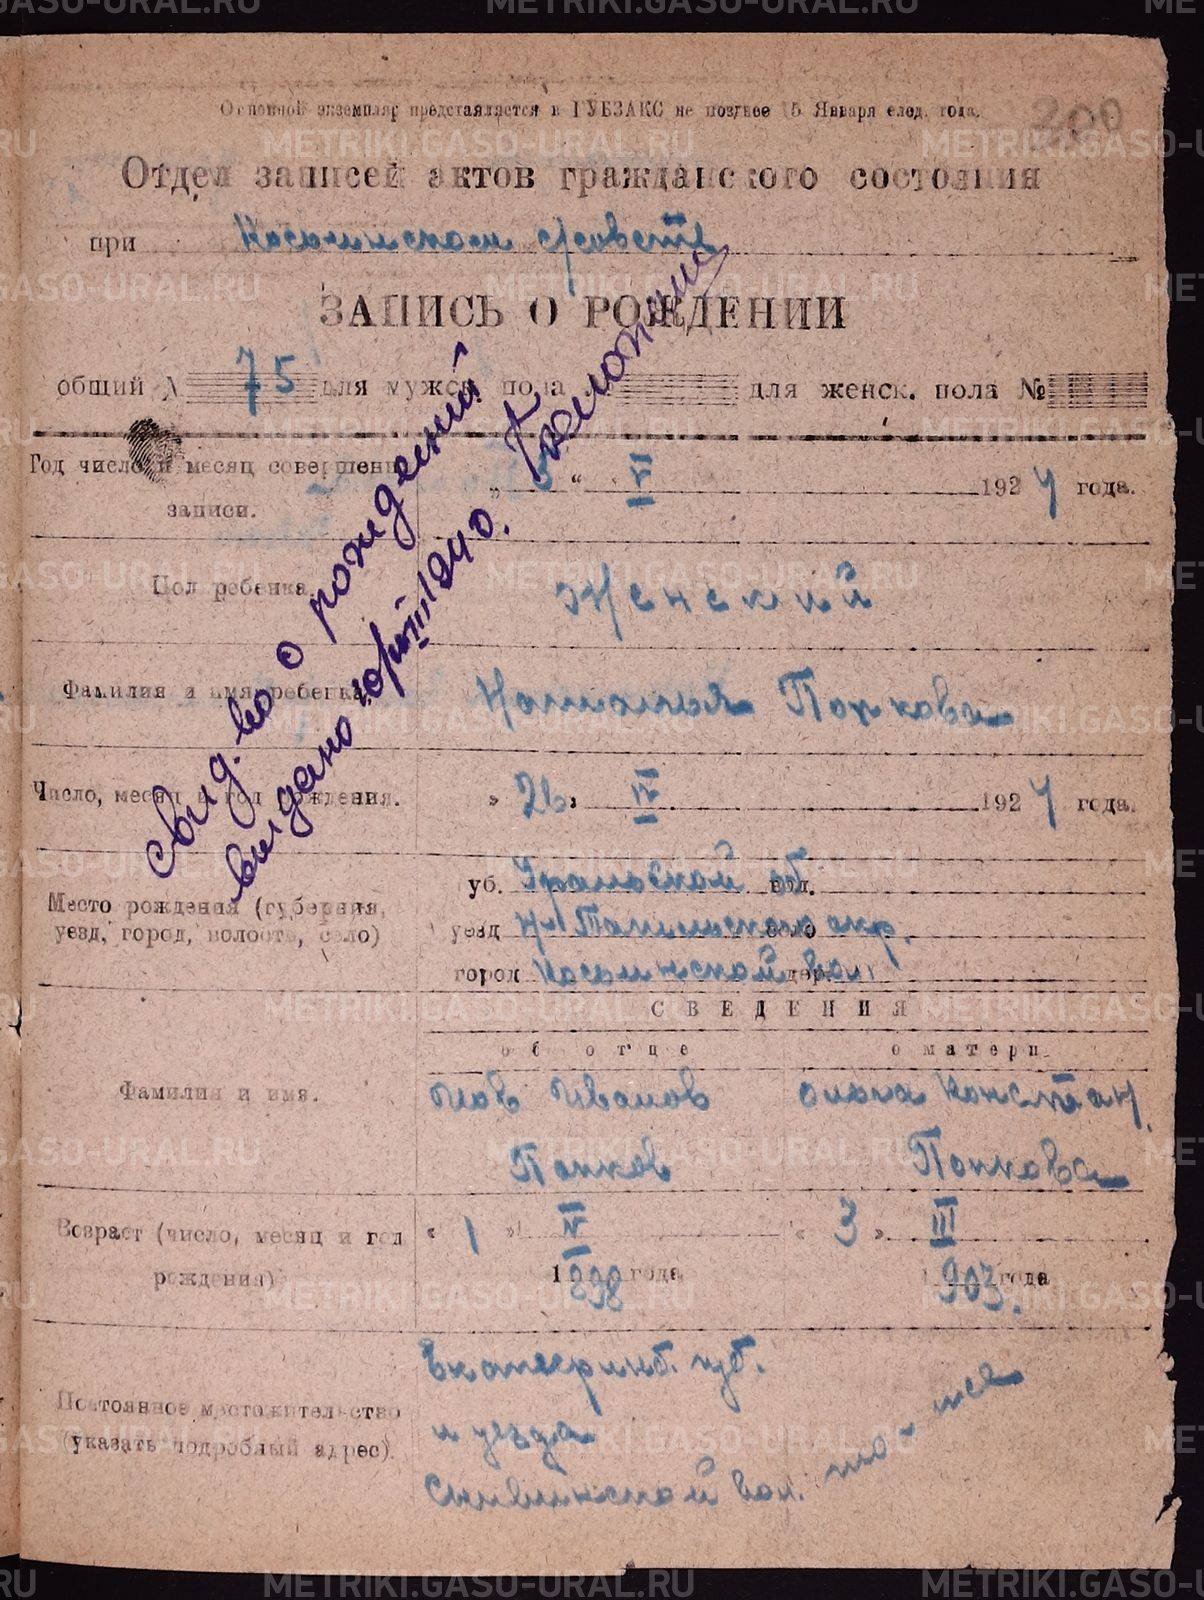 Основной экземпляр представляется в ГУБЗАКС не позднее 15 Января след. года.
200
Отдел записей актов гражданского состояния
при
ЗАПИСЬ О РОЖДЕНИИ
общий № 75 для мужск. пола для женск. пола №
Год число и месяц совершения записи.
„ 5 “ V 1924 года.
Пол ребенка
Женский
Фамилия и имя ребенка
Наталья Попкова
Число, месяц и год рождения.
„ 26 „ IV 1924 года.
Место рождения (губерния, уезд, город, волость, село)
губ. Уральской об. вол.
уезд Н-Тагильского окр. село
город дер.
СВЕДЕНИЯ
об отце
о матери
Фамилия и имя.
Иов Иванов
Попков
Констан.
Попкова
Возраст (число, месяц и год рождения)
« 1 » IV 1898 года
« 3 » III 1903. года
Постоянное местожительство (указать подробный адрес).
Екатеринб. губ.
и уезда
вол.
то-же
свид.во о рождении
выдано 1940.
METRIKI.GASO-URAL.RU